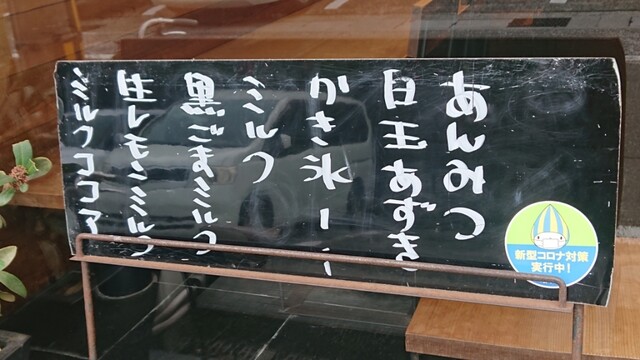 あんみつ
白玉あずき
かき氷
ミルク
黒ごまミルク
生レモンミルク
ミルクココア
新型コロナ対策
実行中!